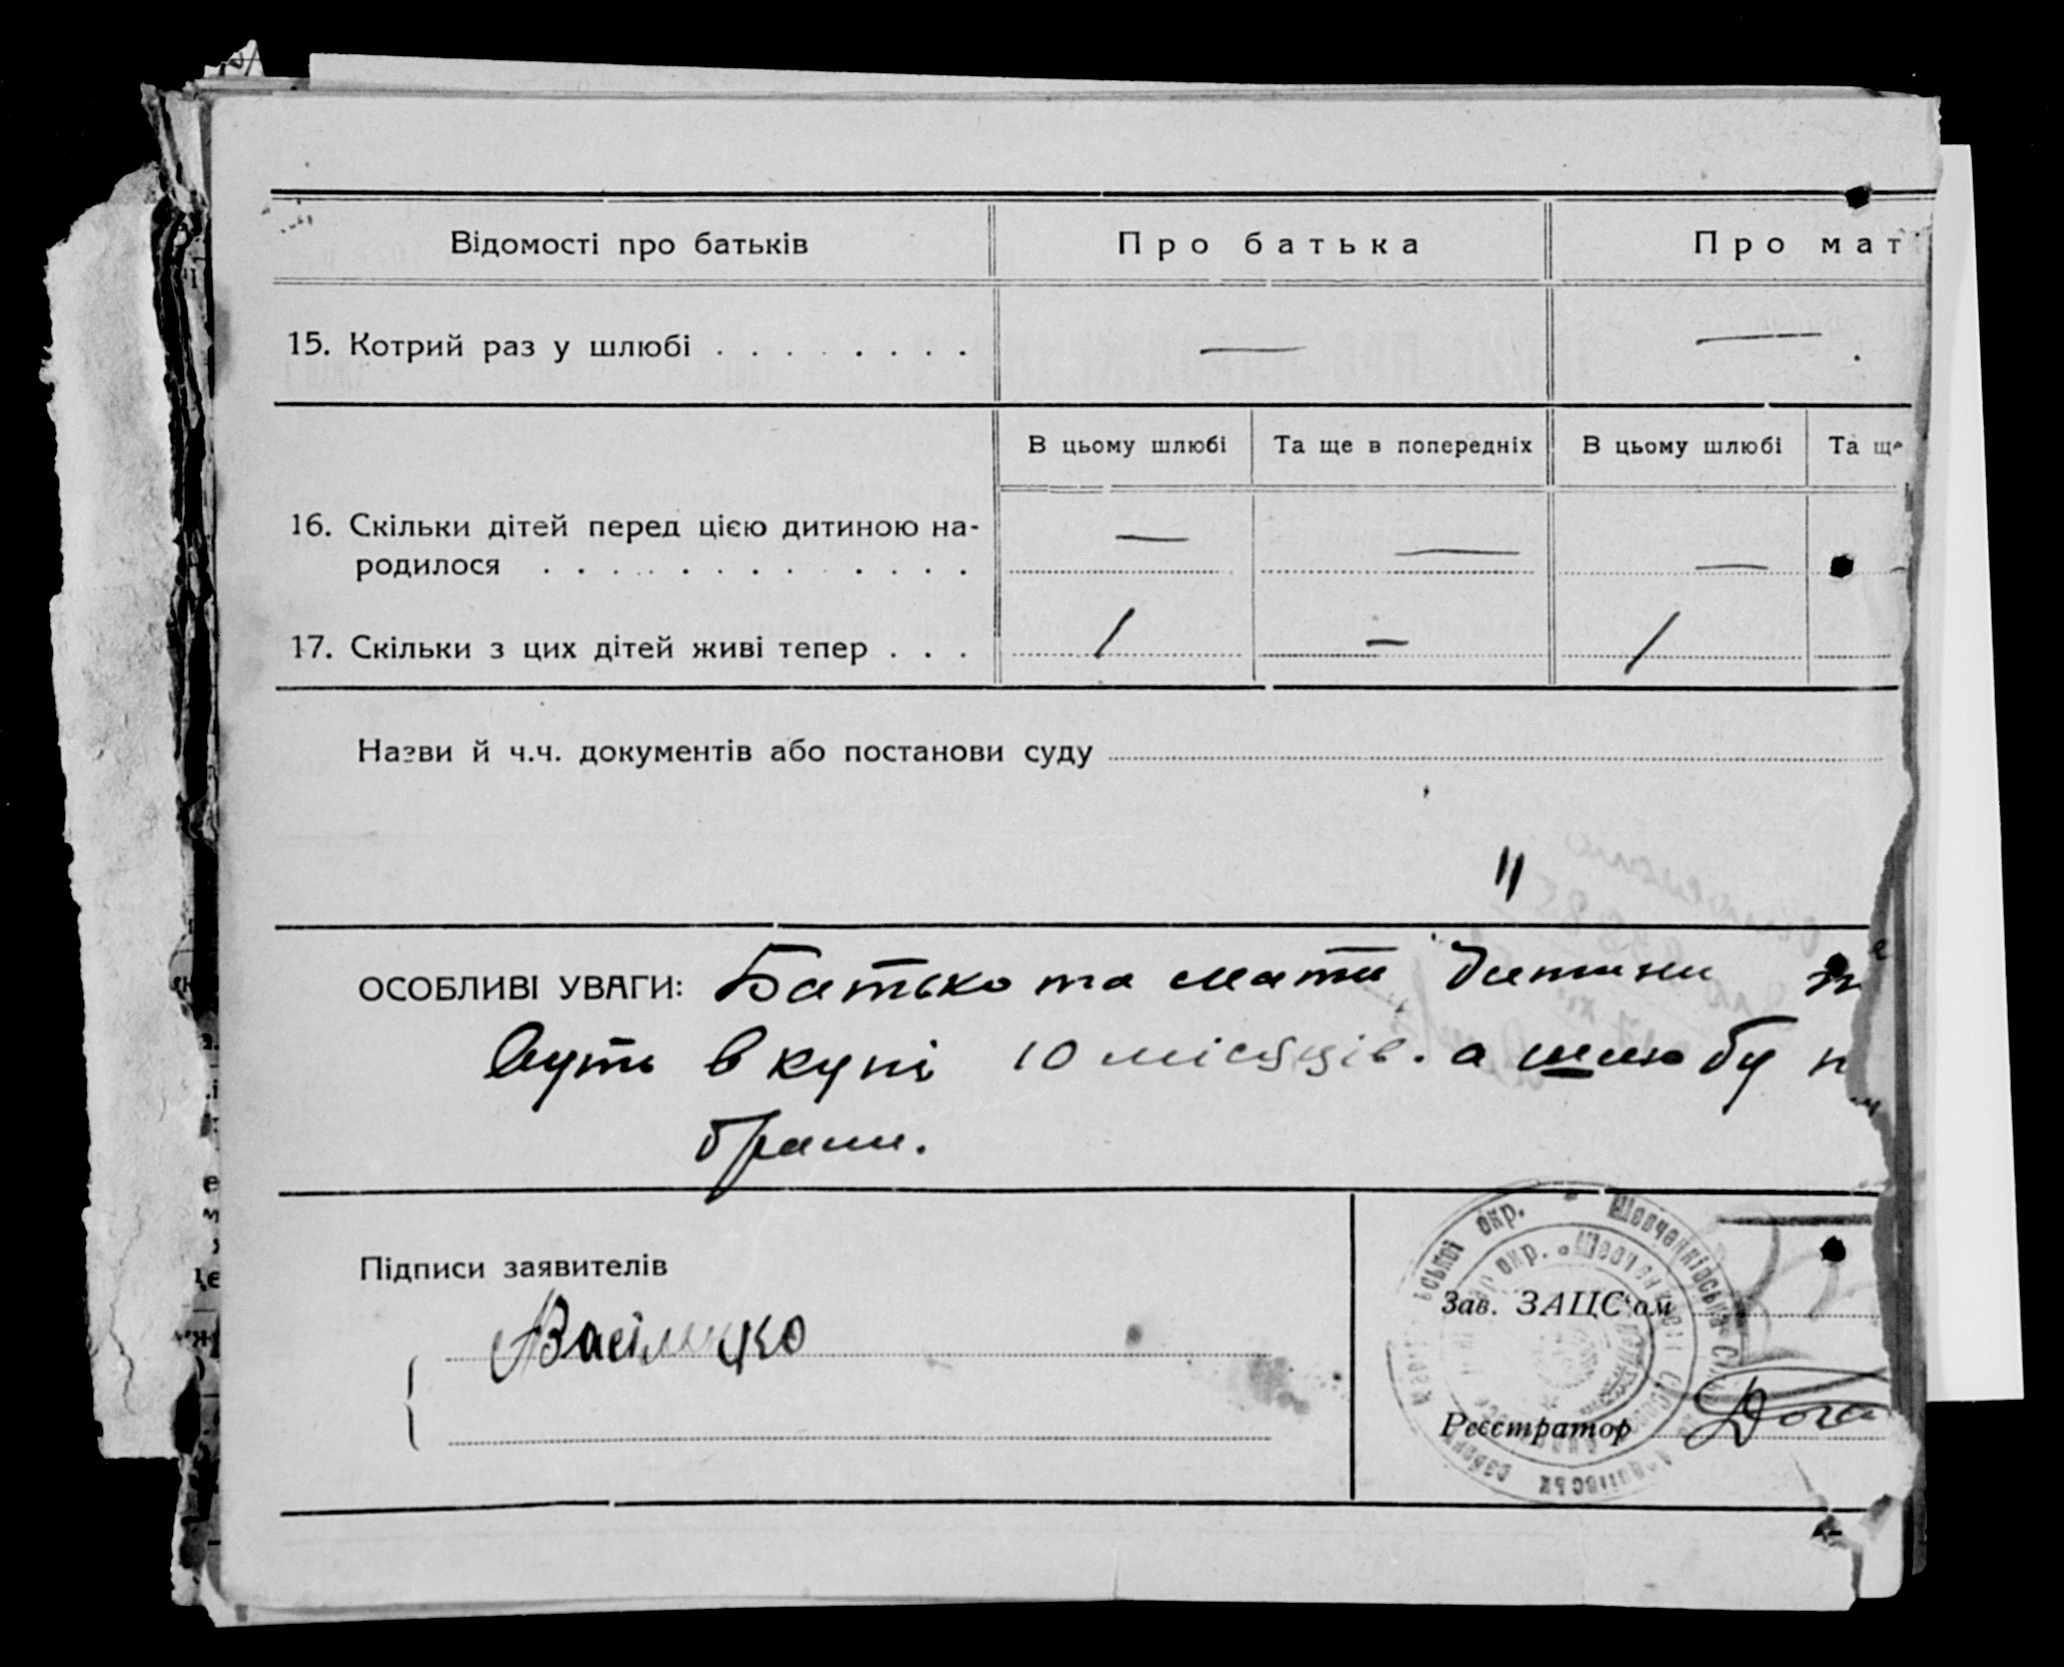 Відомості про батьків Про батька Про мат
15. Котрий раз у шлюбі . . . . . . . . — —
В цьому шлюбі Та ще в попередніх В цьому шлюбі Та ще
16. Скільки дітей перед цією дитиною на- — — —
родилося . . . . . . . . . . . . .
17. Скільки з цих дітей живі тепер . . . / – /
Назви й ч.ч. документів або постанови суду
"
ОСОБЛИВІ УВАГИ: Батько та мати дитини
вуть вкупі 10 місяців. а шлюбу н
брали.
Підписи заявителів
Зав. ЗАЦС'ом
Василицко
Реєстратор